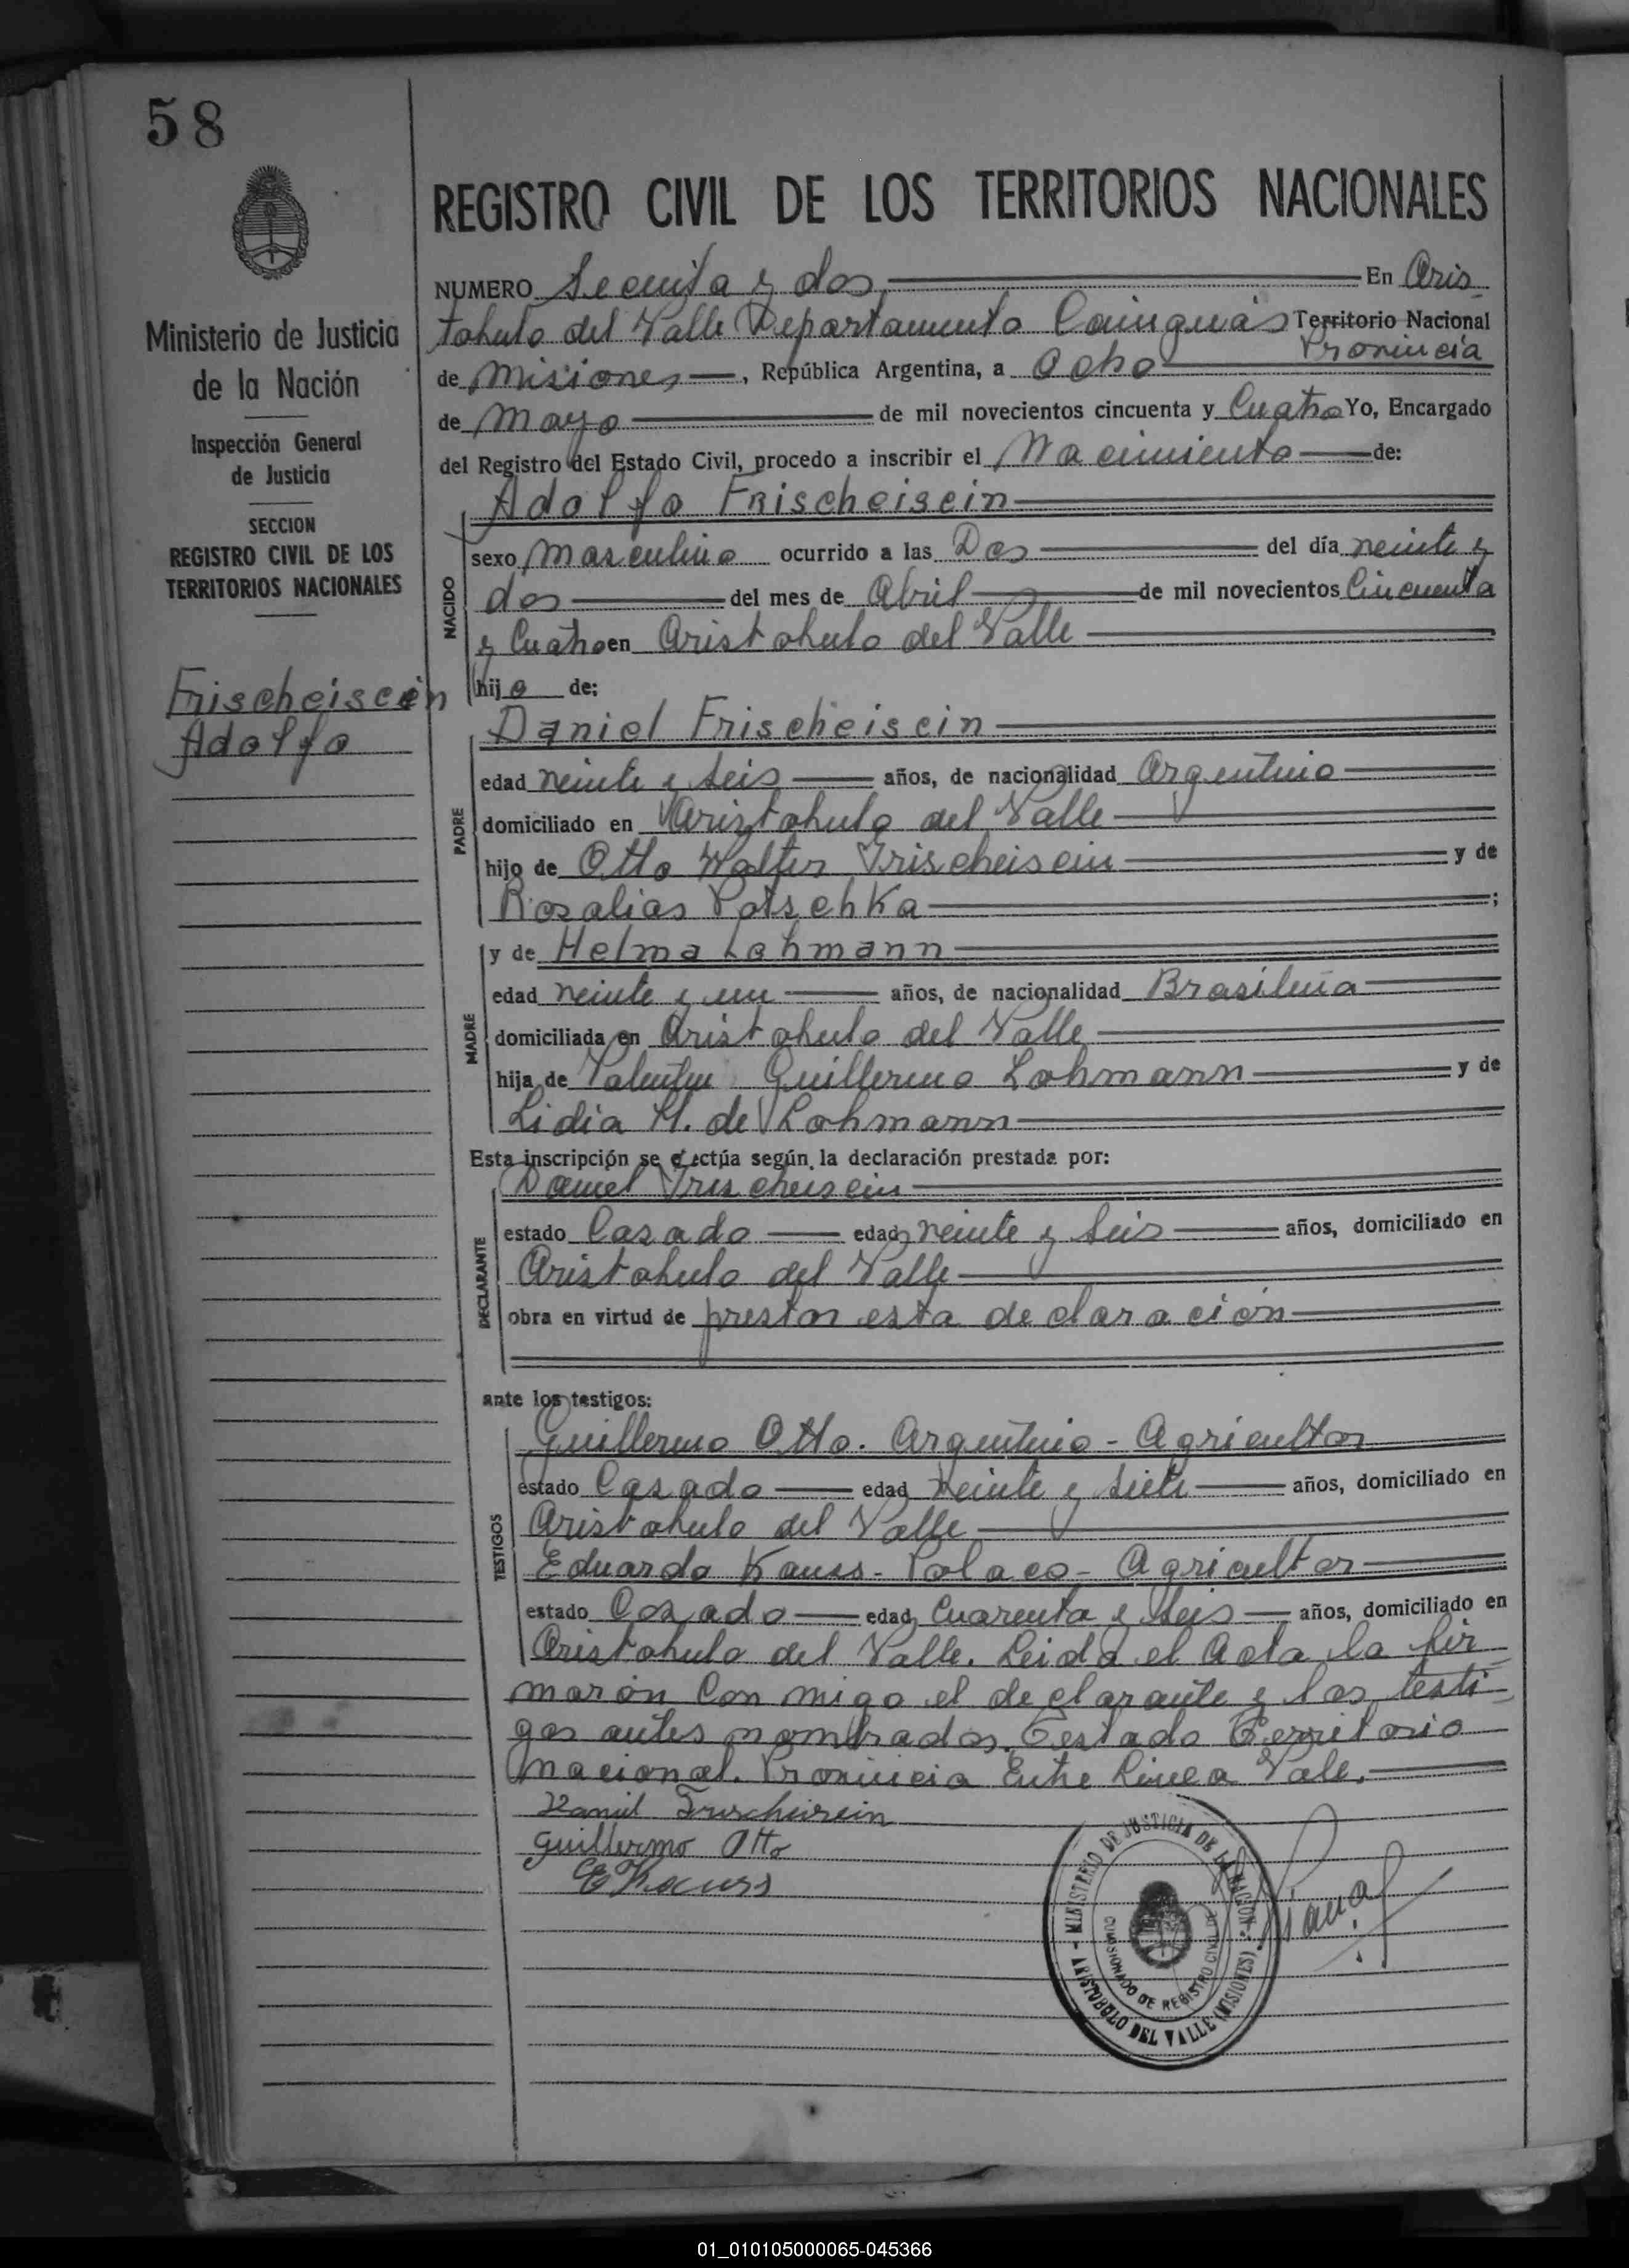 58
REGISTRO CIVIL DE LOS TERRITORIOS NACIONALES
Ministerio de Justicia
de la Nación
Inspección General
de Justicia
SECCION
REGISTRO CIVIL DE LOS
TERRITORIOS NACIONALES
Frischeisein
Adolfo
NUMERO Secenta y dos En Aris
tobulo del Valle Departamento Cainguás Territorio Nacional
Provincia
de Misiones, República Argentina, a Ocho
de Mayo de mil novecientos cincuenta y Cuatro Yo, Encargado
del Registro del Estado Civil, procedo a inscribir el Nacimiento de:
Adolfo Frischeisein
NACIDO
sexo Masculino ocurrido a las Dos del día veinte y
dos del mes de Abril de mil novecientos Cincuenta
y Cuatro en Aristobulo del Valle
hijo de:
Daniel Frischeisein
PADRE
edad veinte y seis años, de nacionalidad Argentino
domiciliado en Aristobulo del Valle
hijo de Otto Walter Frischeisein y de
Rosalias Potschka;
MADRE
y de Helma Lohmann
edad veinte y un años, de nacionalidad Brasileña
domiciliada en Aristobulo del Valle
hija de Valentin Guillermo Lohmann y de
Lidia H. de Lohmann
Esta inscripción se efectúa según la declaración prestada por:
DECLARANTE
Daniel Frischeisein
estado Casado edad veinte y seis años, domiciliado en
Aristobulo del Valle
obra en virtud de prestar esta declaración
ante los testigos:
TESTIGOS
Guillermo Otto. Argentino - Agricultor
estado Casado edad veinte y siete años, domiciliado en
Aristobulo del Valle
Eduardo Kauss - Polaco - Agricultor
estado Casado edad Cuarenta y seis años, domiciliado en
Aristobulo del Valle. Leida el Acta la fir-
marón Con migo el declarante y los testi-
gos antes nombrados. Testado Territorio
Nacional. Provincia Entre Linea Vale.
Daniel Frischeisein
Guillermo Otto
E Kauss
MINISTERIO DE JUSTICIA DE LA NACION
COMISIONADO DE REGISTRO CIVIL DE
ARISTOBULO DEL VALLE (MISIONES)
01_010105000065-045366